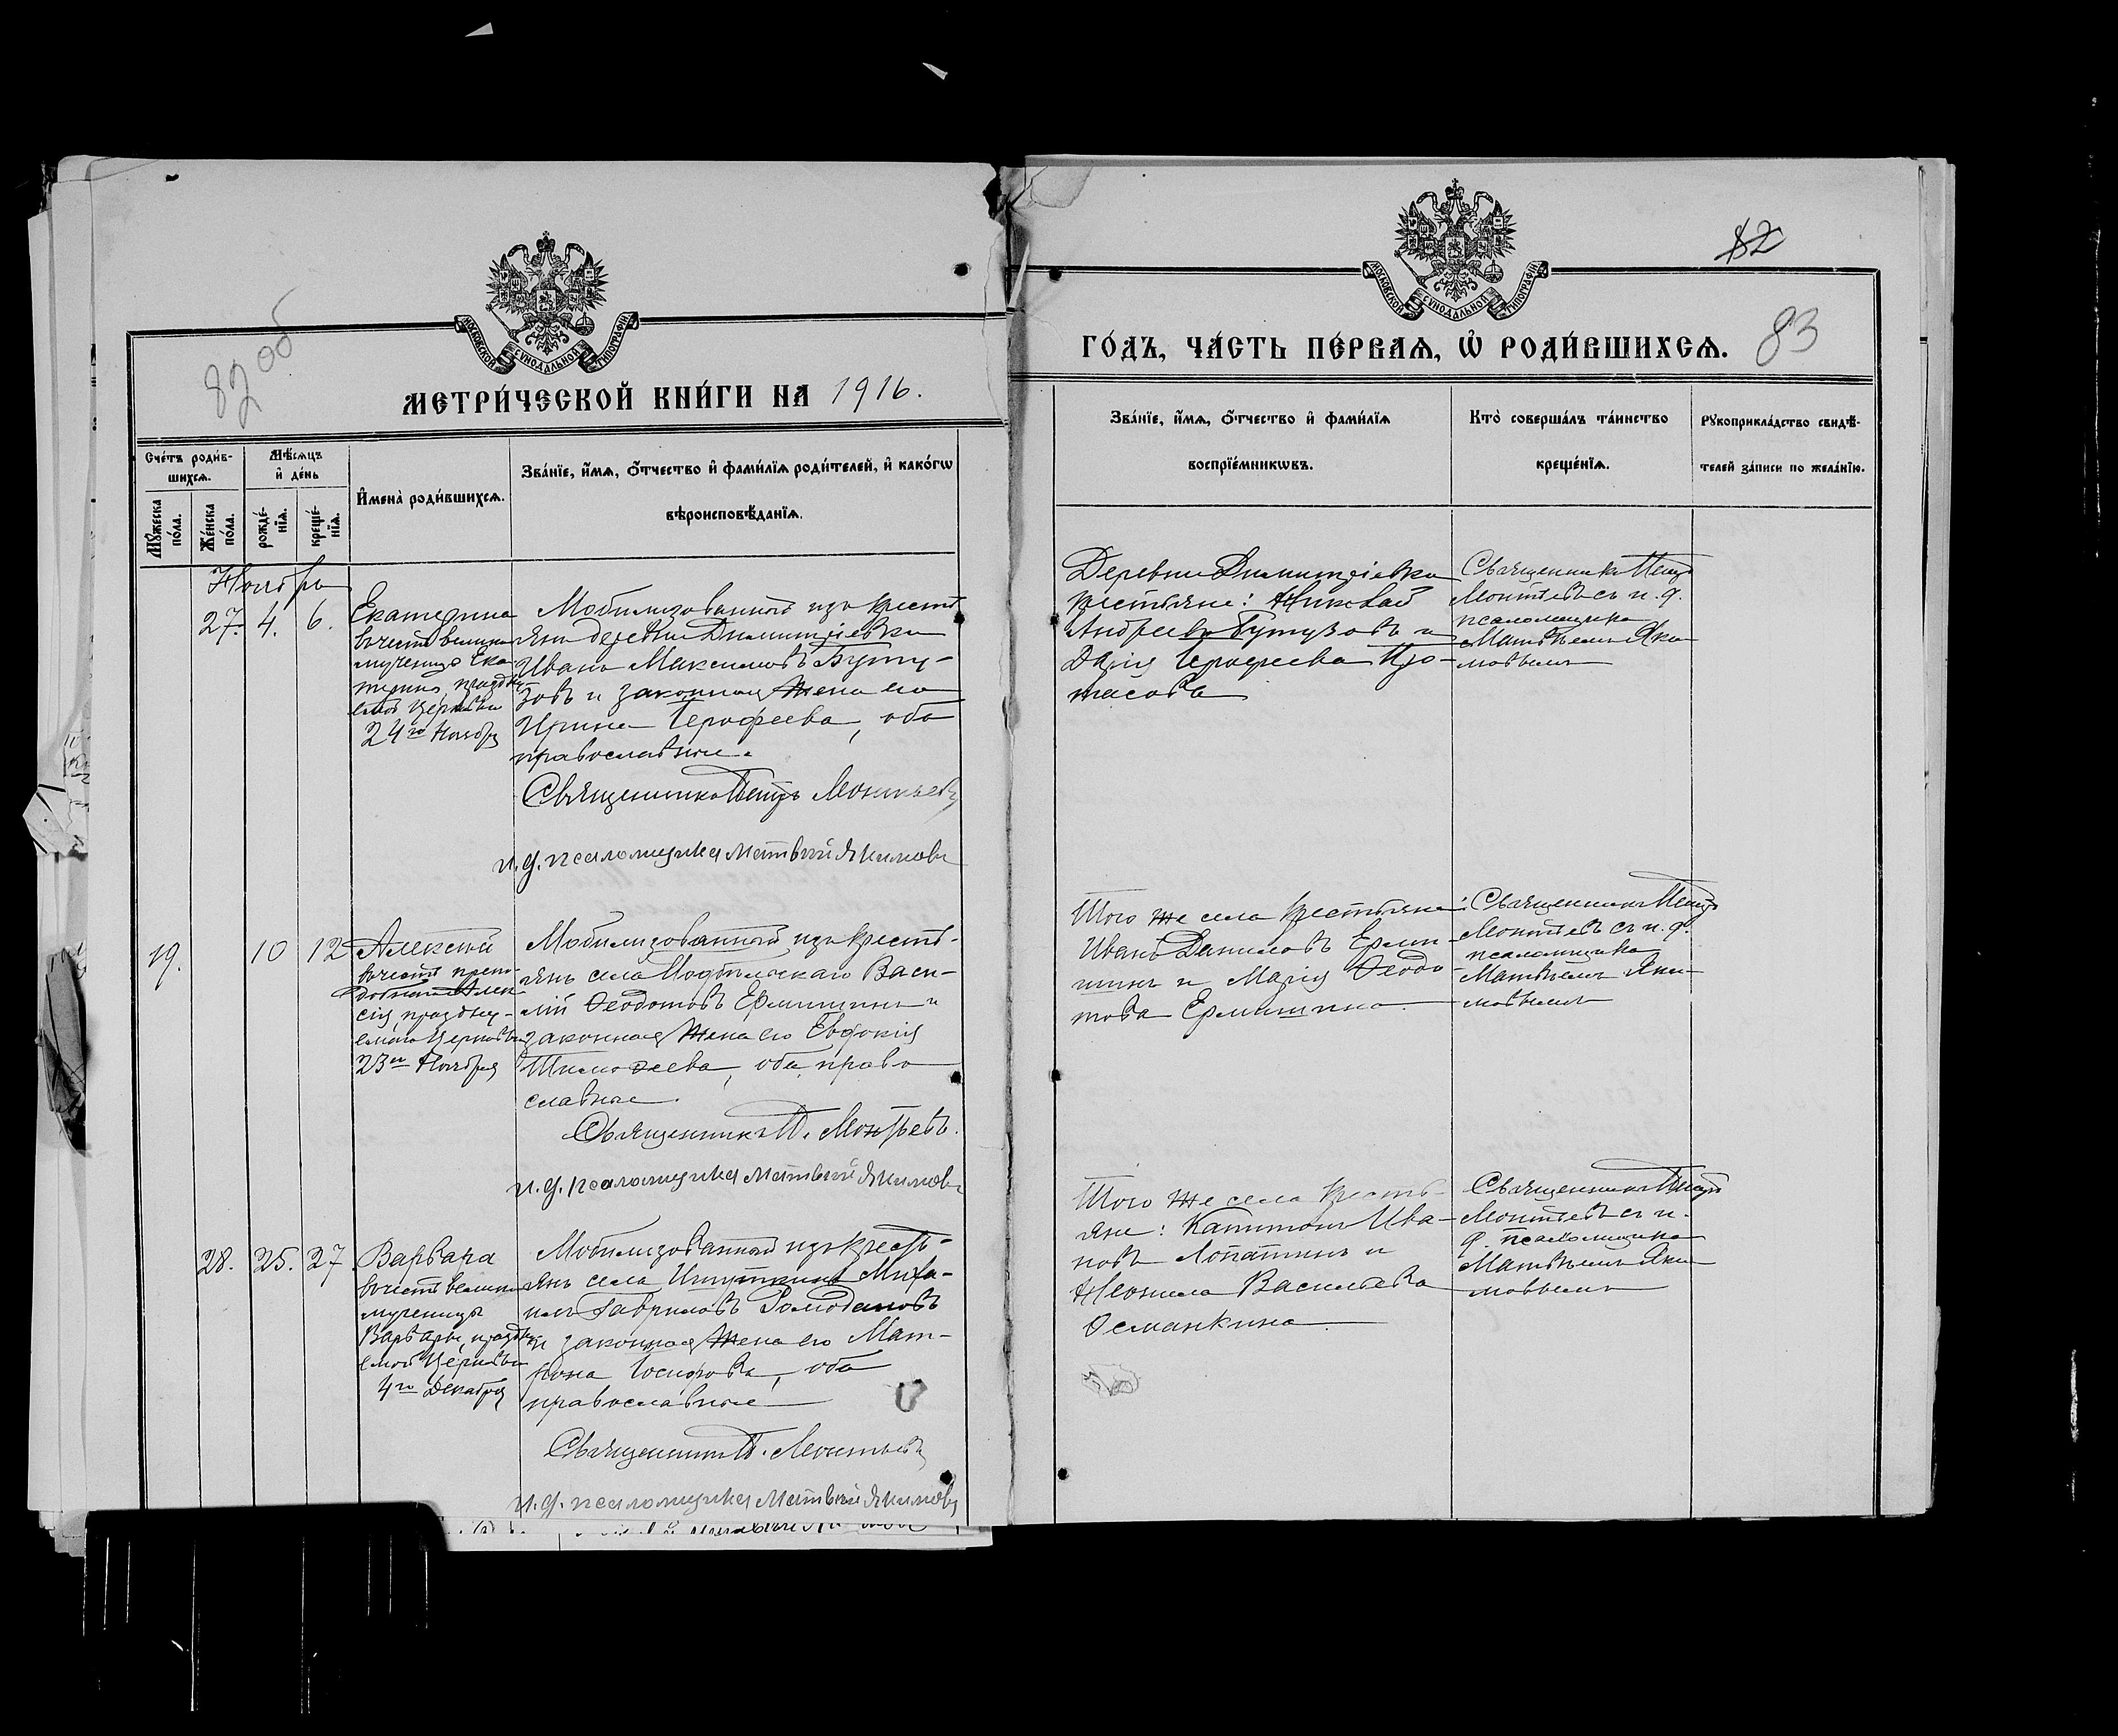 82 об
МОСКОВСКОЙ СУНОДАЛЬНОЙ ТИПОГРАФІИ
МЕТРИ́ЧЕСКОЙ КНИ́ГИ НА 1916.
Сче́тъ роди́в-
шихсѧ.
Мꙋ́жеска
по́ла.
Же́нска
по́ла.
Мѣ́сѧцъ
и҆ де́нь
рожде́-
нїѧ.
креще́-
нїѧ.
И҆мена̀ роди́вшихсѧ.
Зва́нїе, и҆́мѧ, ѻ҆́тчество и҆ фами́лїѧ роди́телей, и҆ како́гѡ
вѣроисповѣ́данїѧ.
Ноябрь
27. 4. 6.
Екатерина
въ честь велико
мученицы Ека
терины, праздну-
емой Церковью
24го Ноября
Мобилизованный изъ кресть
янъ деревни Димитріевки
Иванъ Максимовъ Буту-
зовъ и законная жена его
Ирина Іерофеева, оба
православные.
Священникъ Петръ Леонтьевъ
и. д. псаломщика Матвѣй Якимовъ
19. 10 12
Алексѣй
въ честь препо
добнаго Алек-
сія, праздну-
емаго Церковью
23го Ноября
Мобилизованный изъ кресть-
янъ села Васи-
лій Ѳеодотовъ Ермишинъ и
законная жена его Евдокія
Тимоѳеева, оба право
славные.
Священникъ П. Леонтьевъ.
и. д. псаломщика Матвѣй Якимовъ
28. 25. 27
Варвара
въ честь велико
мученицы
Варвары, праздну
емой Церковью
4го Декабря
Мобилизованный изъ кресть-
янъ села Ишуткина Миха-
илъ Гавриловъ Ромодановъ
и законная жена его Мат-
рона Іосифова, оба
православные
Священникъ П. Леонтьевъ
и. д. псаломщика Матвѣй Якимовъ
82
МОСКОВСКОЙ СУНОДАЛЬНОЙ ТИПОГРАФІИ
ГО́ДЪ, ЧА́СТЬ ПЕ́РВАѦ, Ѡ҆ РОДИ́ВШИХСѦ. 83
Зва́нїе, и҆́мѧ, ѻ҆́тчество и҆ фами́лїѧ
воспрїе́мникѡвъ.
Кто̀ соверша́лъ та́инство
креще́нїѧ.
Рꙋкоприкла́дство свидѣ́-
телей за́писи по жела́нїю.
Деревни Димитріевки
крестьяне: Николай
Андреевъ Бутузовъ и
Дарія Іерофеева Про-
тасова
Священникъ Петръ
Леонтьевъ съ и. д.
псаломщика
Матвѣемъ Яки
мовымъ
Того же села крестьяне:
Иванъ Даниловъ Ерми-
шинъ и Марія Ѳеодо-
това Ермишина
Священникъ Петръ
Леонтьевъ съ и. д.
псаломщика
Матвѣемъ Яки-
мовымъ
Того же села кресть-
яне: Капитонъ Ива-
новъ Лопатинъ и
Неонила Васильева
Османкина
Священникъ Петръ
Леонтьевъ съ и.
д. псаломщика
Матвѣемъ Яки
мовымъ